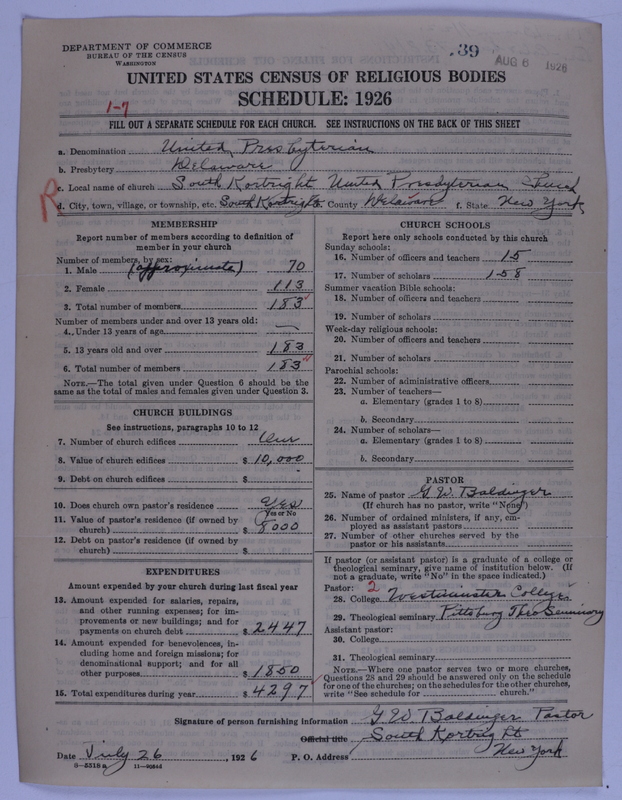 DEPARTMENT OF COMMERCE
BUREAU OF THE CENSUS
WASHINGTON
.39
AUG 6 1926
UNITED STATES CENSUS OF RELIGIOUS BODIES
SCHEDULE: 1926
1-7
FILL OUT A SEPARATE SCHEDULE FOR EACH CHURCH. SEE INSTRUCTIONS ON THE BACK OF THIS SHEET
a. Denomination United Presbyterian
b. Presbytery Delaware
c. Local name of church South Kortright United Presbyterian Church
R
d. City, town, village, or township, etc. South Kortright County Delaware f. State New York
MEMBERSHIP
Report number of members according to definition of
member in your church
Number of members, by sex:
1. Male (approximate) 70
2. Female 113
3. Total number of members 183
Number of members under and over 13 years old:
4. Under 13 years of age —
5. 13 years old and over 183
6. Total number of members 183
NOTE.—The total given under Question 6 should be the
same as the total of males and females given under Question 3.
CHURCH BUILDINGS
See instructions, paragraphs 10 to 12
7. Number of church edifices One
8. Value of church edifices $ 10,000
9. Debt on church edifices $
10. Does church own pastor's residence Yes
Yes or No
11. Value of pastor's residence (if owned by
church) $ 8000
12. Debt on pastor's residence (if owned by
church) $
EXPENDITURES
Amount expended by your church during last fiscal year
13. Amount expended for salaries, repairs,
and other running expenses; for im-
provements or new buildings; and for
payments on church debt $ 2447
14. Amount expended for benevolences, in-
cluding home and foreign missions; for
denominational support; and for all
other purposes $ 1850
15. Total expenditures during year $ 4297
CHURCH SCHOOLS
Report here only schools conducted by this church
Sunday schools:
16. Number of officers and teachers 15
17. Number of scholars 158
Summer vacation Bible schools:
18. Number of officers and teachers
19. Number of scholars
Week-day religious schools:
20. Number of officers and teachers
21. Number of scholars
Parochial schools:
22. Number of administrative officers
23. Number of teachers—
a. Elementary (grades 1 to 8)
b. Secondary
24. Number of scholars—
a. Elementary (grades 1 to 8)
b. Secondary
PASTOR
25. Name of pastor G. W. Baldinger
(If church has no pastor, write "None")
26. Number of ordained ministers, if any, em-
ployed as assistant pastors
27. Number of other churches served by the
pastor or his assistants
If pastor (or assistant pastor) is a graduate of a college or
theological seminary, give name of institution below. (If
not a graduate, write "No" in the space indicated.)
Pastor: 2
28. College Westminster College
29. Theological seminary Pittsburg Theo Seminary
Assistant pastor:
30. College
31. Theological seminary
NOTE.—Where one pastor serves two or more churches,
Questions 28 and 29 should be answered only on the schedule
for one of the churches; on the schedules for the other churches,
write "See schedule for church."
Signature of person furnishing information G. W. Baldinger Pastor
Official title South Kortright
Date July 26, 1926 P. O. Address New York
8-5318a 11-9684d